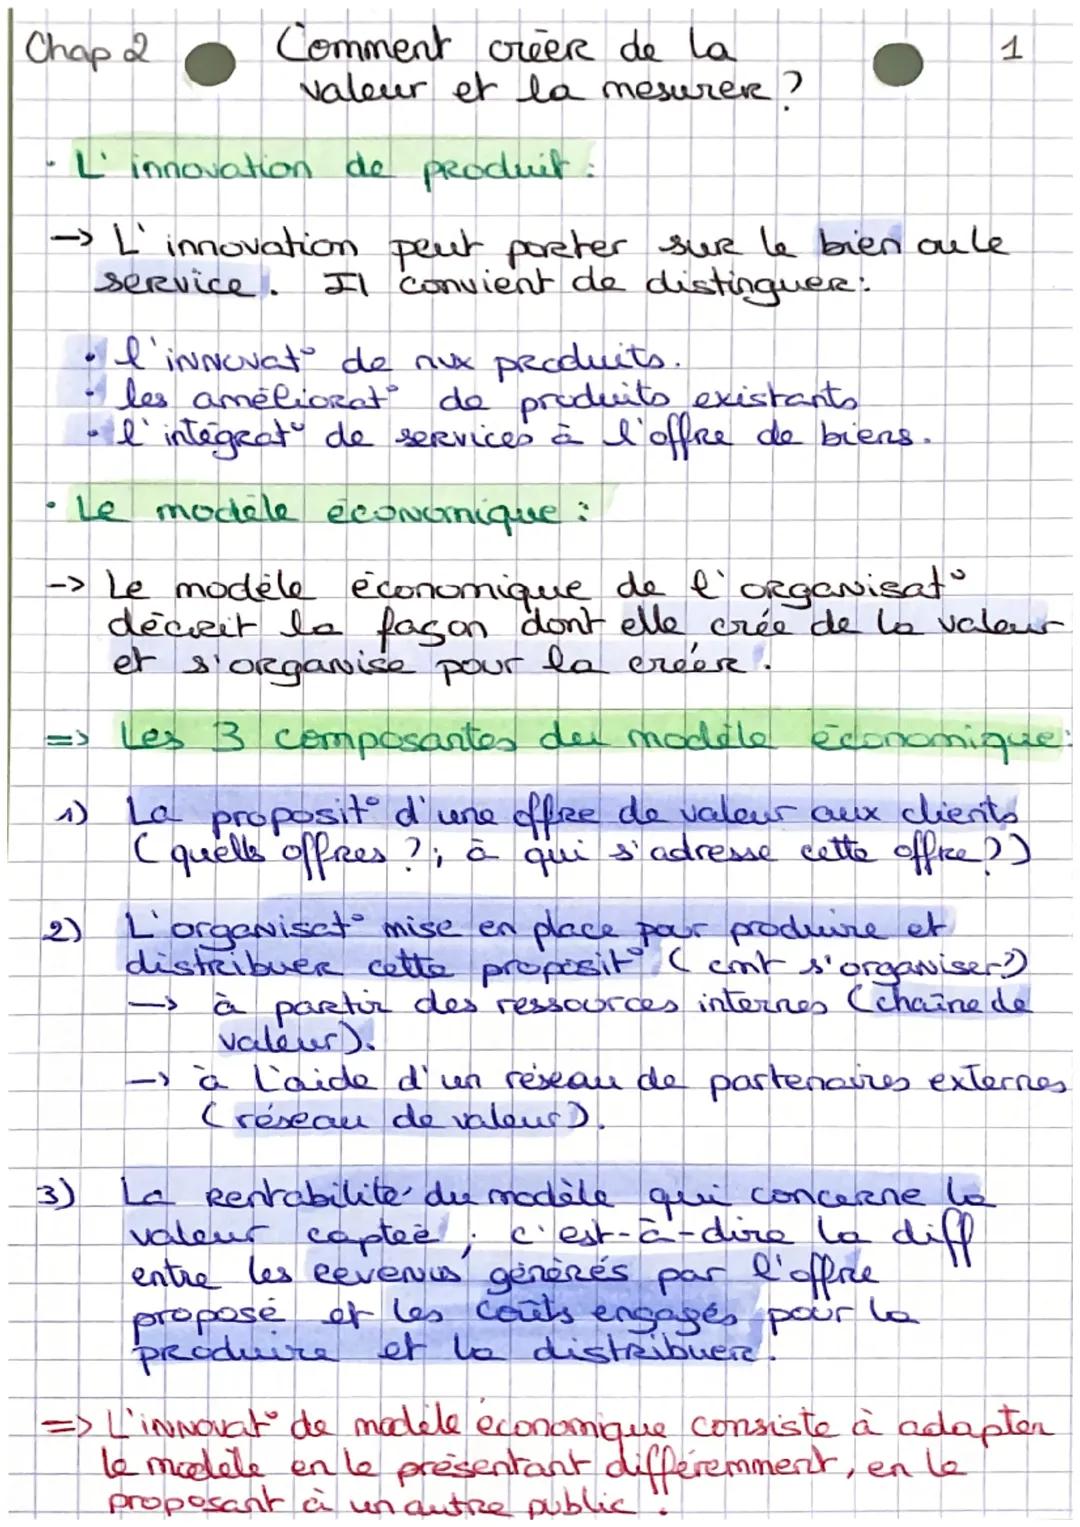 Chap 2
Comment créer de la
valeur et la mesurer ?
1
• L'innovation de produit :
-> L'innovation peut porter sur le bien ou le
service. Il convient de distinguer :
• l'innovat° de nvx produits.
• les améliorat° de produits existants
• l'intégrat° de services à l'offre de biens.
• Le modèle économique :
-> Le modèle économique de l'organisat°
décrit la façon dont elle crée de la valeur
et s'organise pour la créer.
=> Les 3 composantes du modèle économique :
1) La proposit° d'une offre de valeur aux clients
(quells offres ? ; à qui s'adresse cette offre ?)
2) L'organisat° mise en place par produire et
distribuer cette proposit° (cmt s'organiser ?)
-> à partir des ressources internes (chaîne de
valeur).
-> à l'aide d'un réseau de partenaires externes
(réseau de valeur).
3) La rentabilité du modèle qui concerne la
valeur captée ; c'est-à-dire la diff
entre les revenus générés par l'offre
proposé et les coûts engagés pour la
produire et la distribuer.
=> L'innovat° de modèle économique consiste à adapter
le modèle en le présentant différemment, en le
proposant à un autre public.